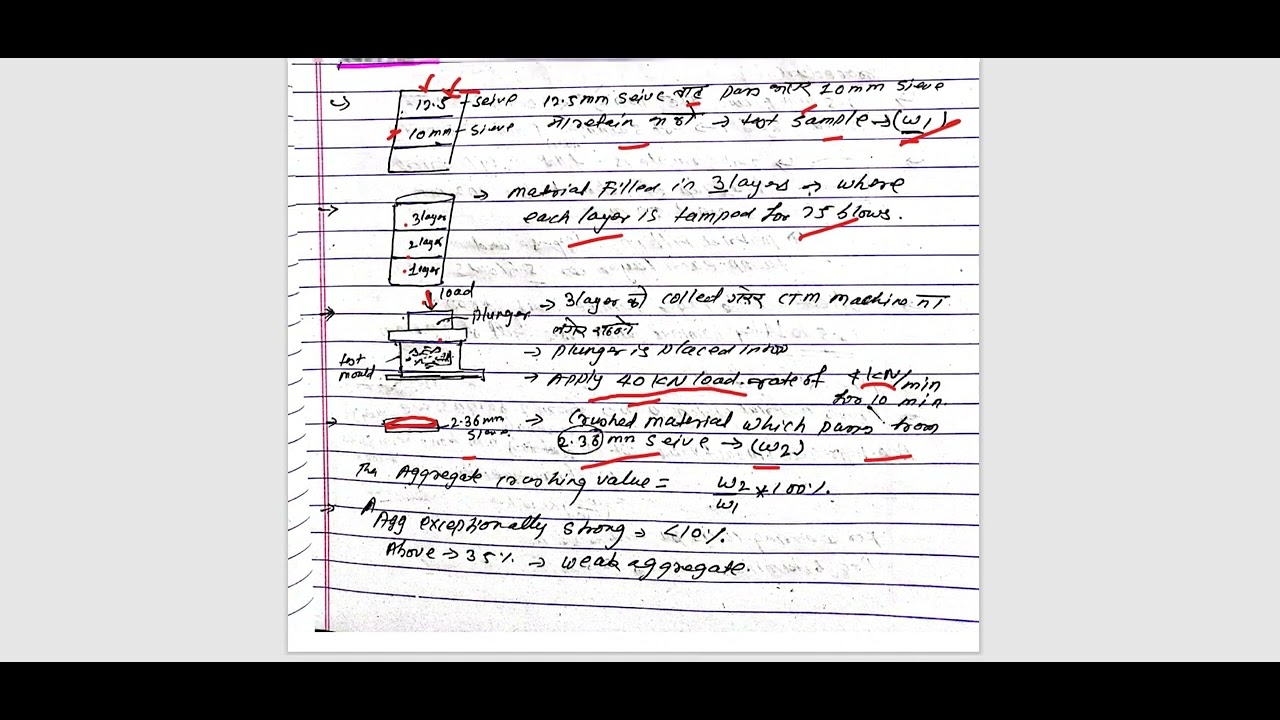 12.5 - seive
10mm - sieve
12.5mm seive बाट pass भएर 10mm sieve
मा retain भएको → test sample → (W1)
3 layer
2 layer
1 layer
→ material filled in 3 layers → where
each layer is tamped for 25 blows.
load
plunger
test
mould
→ 3 layer को collect गरेर CTM machine मा
लगेर राख्ने
→ plunger is placed into
→ Apply 40 KN load rate of 4 KN/min
for 10 min.
2.36mm
sieve.
→ Crushed material which pass from
2.36 mm seive → (W2)
The Aggregate crushing value = W2/W1 * 100%.
Agg exceptionally strong → <10%.
Above → 35% → weak aggregate.